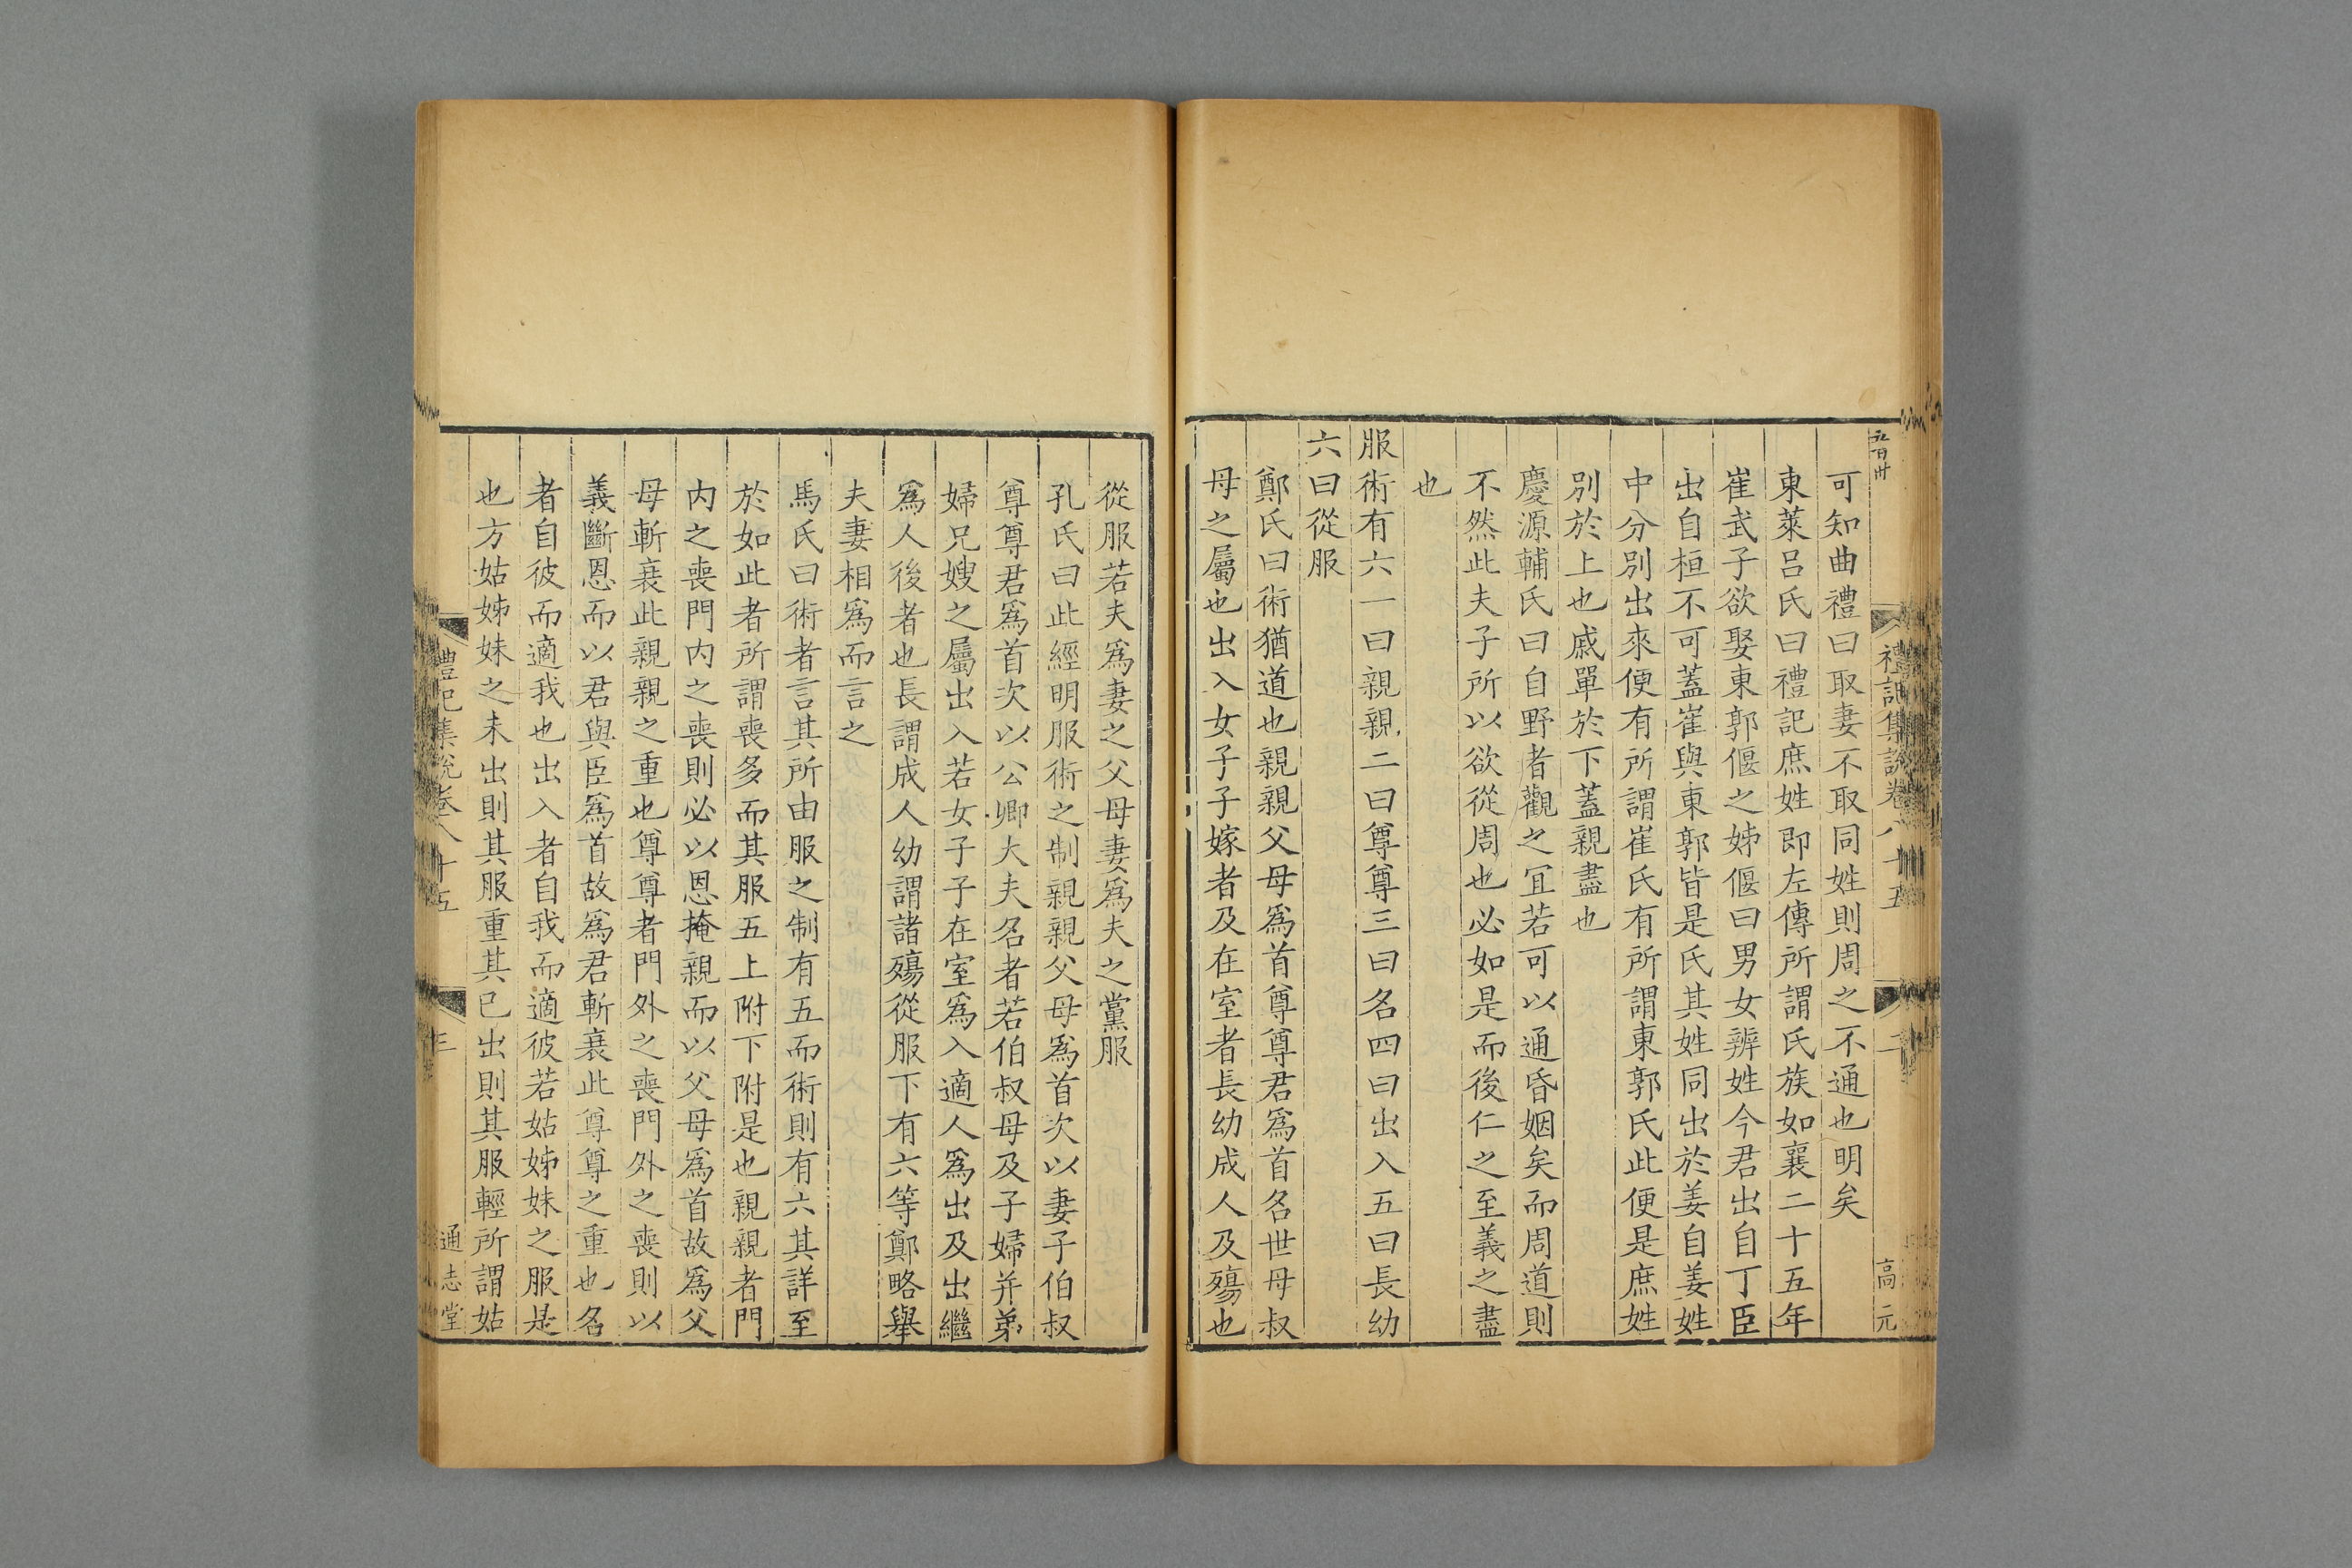 禮記集說卷八十五
二
高元
可知曲禮曰取妻不取同姓則周之不通也明矣
東萊呂氏曰禮記庶姓即左傳所謂氏族如襄二十五年
崔武子欲娶東郭偃之姊偃曰男女辨姓今君出自丁臣
出自桓不可蓋崔與東郭皆是氏其姓同出於姜自姜姓
中分別出來便有所謂崔氏有所謂東郭氏此便是庶姓
別於上也戚單於下蓋親盡也
慶源輔氏曰自野者觀之冝若可以通昏姻矣而周道則
不然此夫子所以欲從周也必如是而後仁之至義之盡
也
服術有六一曰親親二曰尊尊三曰名四曰出入五曰長幼
六曰從服
鄭氏曰術猶道也親親父母爲首尊尊君爲首名世母叔
母之屬也出入女子子嫁者及在室者長幼成人及殤也
從服若夫爲妻之父母妻爲夫之黨服
孔氏曰此經明服術之制親親父母爲首次以妻子伯叔
尊尊君爲首次以公卿大夫名者若伯叔母及子婦并弟
婦兄嫂之屬出入若女子子在室爲入適人爲出及出繼
爲人後者也長謂成人幼謂諸殤從服下有六等鄭略舉
夫妻相爲而言之
馬氏曰術者言其所由服之制有五而術則有六其詳至
於如此者所謂喪多而其服五上附下附是也親親者門
内之喪門内之喪則必以恩掩親而以父母爲首故爲父
母斬衰此親親之重也尊尊者門外之喪門外之喪則以
義斷恩而以君與臣爲首故爲君斬衰此尊尊之重也名
者自彼而適我也出入者自我而適彼若姑姊妹之服是
也方姑姊妹之未出則其服重其已出則其服輕所謂姑
禮記集說卷八十五
三
通志堂